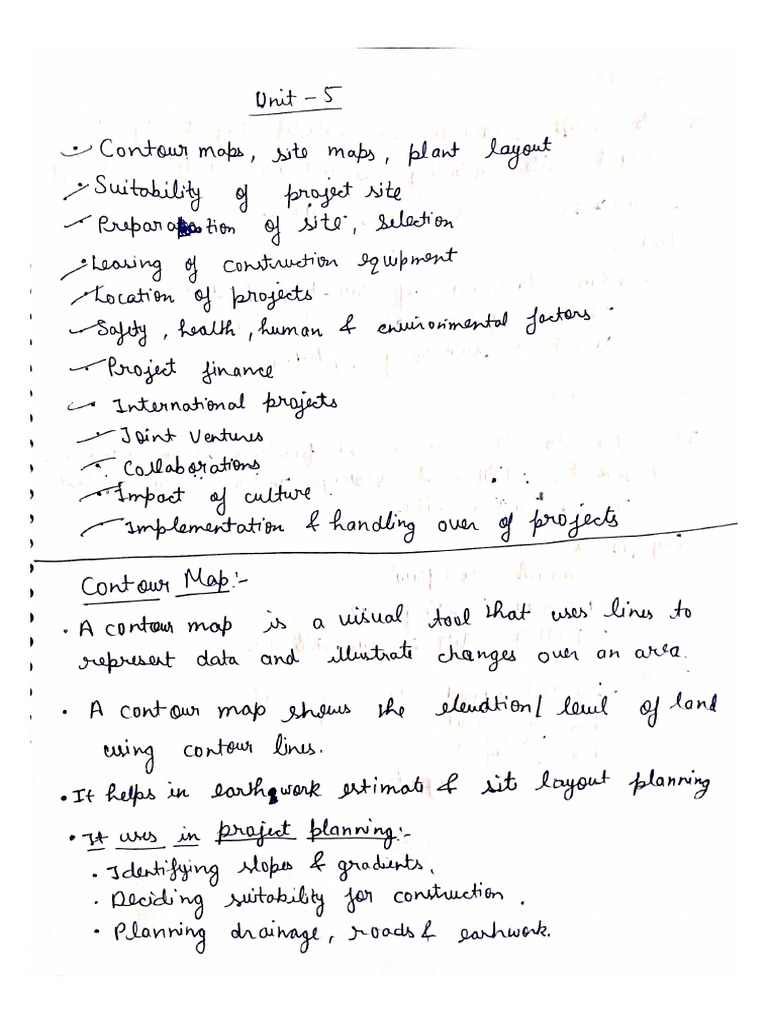 Unit - 5
• Contour maps, site maps, plant layout
• Suitability of project site
• Preparation of site, selection
• Leasing of construction equipment
• Location of projects
• Safety, health, human & environmental factors.
• Project finance
• International projects
• Joint Ventures
• Collaborations
• Impact of culture
• Implementation & handling over of projects
Contour Map:-
• A contour map is a visual tool that uses lines to
represent data and illustrate changes over an area.
• A contour map shows the elevation/ level of land
using contour lines.
• It helps in earthwork estimat & sit layout planning
• It uses in project planning:-
• Identifying slopes & gradients.
• Deciding suitability for construction.
• Planning drainage, roads & earhwork.